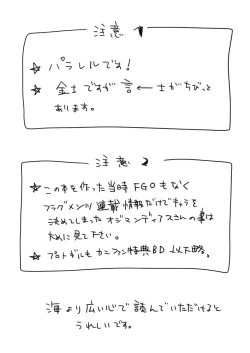 注意 1
☆ パラレルです!
☆ 金士ですが言←士がちびっと
あります。
注意 2
☆ この本を作った当時FGOもなく
フラグメンツ連載情報だけでキャラを
決めてしまったオジマンディアスさんの事は
大めに見て下さい。
☆ プロトギルもカニファン特典BD以下略。
海より広い心で読んでいただけると
うれしいです。